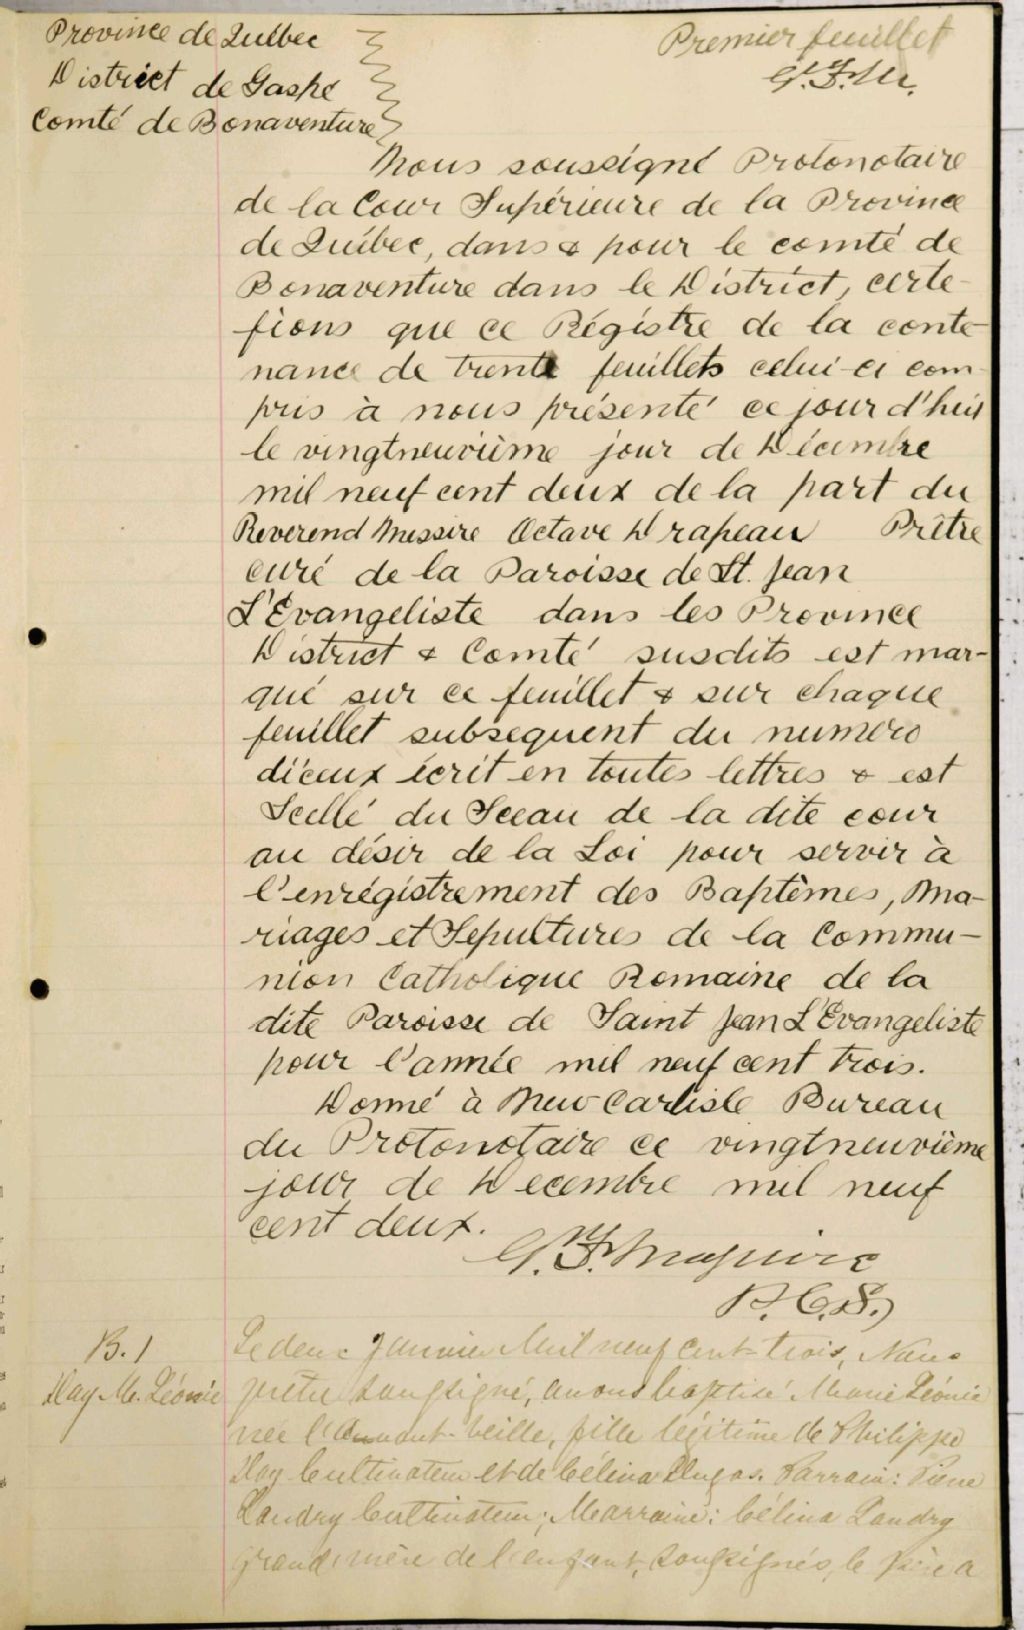 Province de Québec
District de Gaspé
Comté de Bonaventure
Premier feuillet
G.F.M.
Nous soussigné Protonotaire
de la Cour Supérieure de la Province
de Québec, dans & pour le comté de
Bonaventure dans le District, certe-
fions que ce Régistre de la conte-
nance de trente feuillets celui-ci com-
pris à nous présenté ce jour d'hui
le vingtneuvième jour de Décembre
mil neuf cent deux de la part du
Reverend Messire Octave Drapeau Prêtre
curé de la Paroisse de St. Jean
L'Evangeliste dans les Province
District & Comté susdits est mar-
qué sur ce feuillet & sur chaque
feuillet subsequent du numéro
d'iceux écrit en toutes lettres & est
Scellé du Sceau de la dite cour
au désir de la Loi pour servir à
l'enrégistrement des Baptêmes, Ma-
riages et Sepultures de la Commu-
nion Catholique Romaine de la
dite Paroisse de Saint Jean L'Evangeliste
pour l'année mil neuf cent trois.
Donné à New Carlisle Bureau
du Protonotaire ce vingtneuvième
jour de Decembre mil neuf
cent deux.
G.F. Maguire
P.C.S.
B. 1
Hay M. Léonie
Le deux Janvier Mil neuf cent trois, Nous
prêtre soussigné, avons baptisé Marie Léonie
née l'avant-veille, fille légitime de Philippe
Hay Cultivateur et de Célina Dugas. Parrain: Pierre
Landry Cultivateur; Marraine: Célina Landry
grand'mère de l'enfant, soussignés, le père a